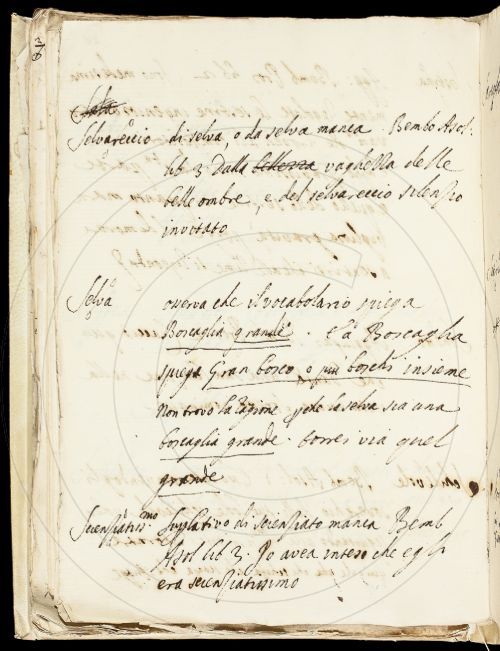 Selvareccio di selva, o da selva manca. Bembo Asol.
lib 3 Dalla bellezza vaghezza delle
belle ombre, e del selvareccio silenzio
invitato
Selva osserva che il vocabolario spiega
Boscaglia grande. e la Boscaglia
spiega Gran bosco, o più boschi insieme
Non trovo la ragione la selva sia una
boscaglia grande. torrei via quel
grande
Scienziatiss.mo Suplativo di scienziato manca Bemb
Asol lib 3. Io avea inteso che egli
era scienziatissimo